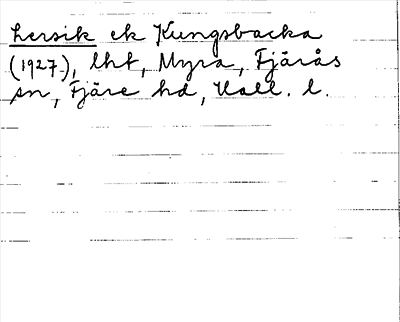 hersik ek Kungsbacka
(1927), lht, Myra, Fjärås
sn, Fjäre hd, Hall. l.